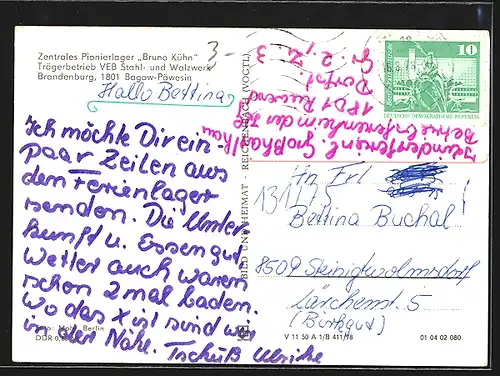 Zentrales Pionierlager „Bruno Kühn"
Trägerbetrieb VEB Stahl- und Walzwerk
Brandenburg, 1801 Bagow-Päwesin
3-
Hallo Bettina
Ich möchte Dir ein-
paar Zeilen aus
dem Ferienlager
senden. Die Unter
kunft u. Essen gut
Wetter auch waren
schon 2mal baden.
Wo das X ist sind wir
in der Nähe. Tschüß Ulrike
Berlin
DDR
BILD UND HEIMAT · REICHENBACH (VOGTL)
V 11 50 A 1/B 411/78
01 04 02 080
10
DEUTSCHE DEMOKRATISCHE REPUBLIK
Gr. 2, Z. 3
1801
Großhallkau
1317
Frl
Bettina Buchal
8509 Steinigtwolmsdorf
Lärchenst. 5
(Birkgut)